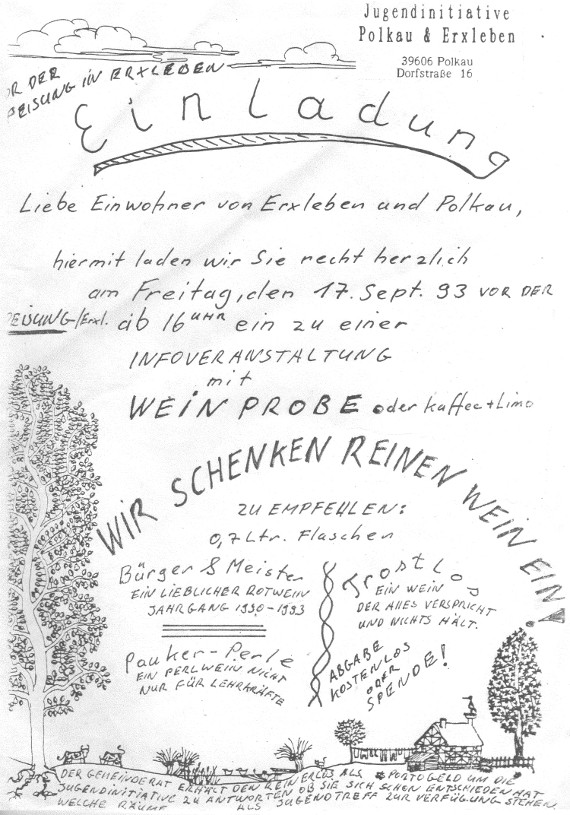 Jugendinitiative
Polkau & Erxleben
39606 Polkau
Dorfstraße 16
OR DER
EISUNG IN ERXLEBEN
Einladung
Liebe Einwohner von Erxleben und Polkau,
hiermit laden wir Sie recht herzlich
am Freitag, den 17. Sept. 93 VOR DER
EISUNG/Erxl. ab 16 UHR ein zu einer
INFOVERANSTALTUNG
mit
WEINPROBE oder Kaffee + Limo
WIR SCHENKEN REINEN WEIN EIN!
ZU EMPFEHLEN:
0,7 Ltr. Flaschen
Bürger & Meister
EIN LIEBLICHER ROTWEIN
JAHRGANG 1990-1993
Pauker-Perle
EIN PERLWEIN NICHT
NUR FÜR LEHRKRÄFTE
Trostlos
EIN WEIN
DER ALLES VERSPRICHT
UND NICHTS HÄLT.
ABGABE
KOSTENLOS
ODER
SPENDE!
DER GEMEINDERAT ERHÄLT DEN REINERLÖS ALS PORTOGELD UM DIE
JUGENDINITIATIVE ZU ANTWORTEN OB SIE SICH SCHON ENTSCHIEDEN HAT
WELCHE RÄUME ALS JUGENDTREFF ZUR VERFÜGUNG STEHEN.